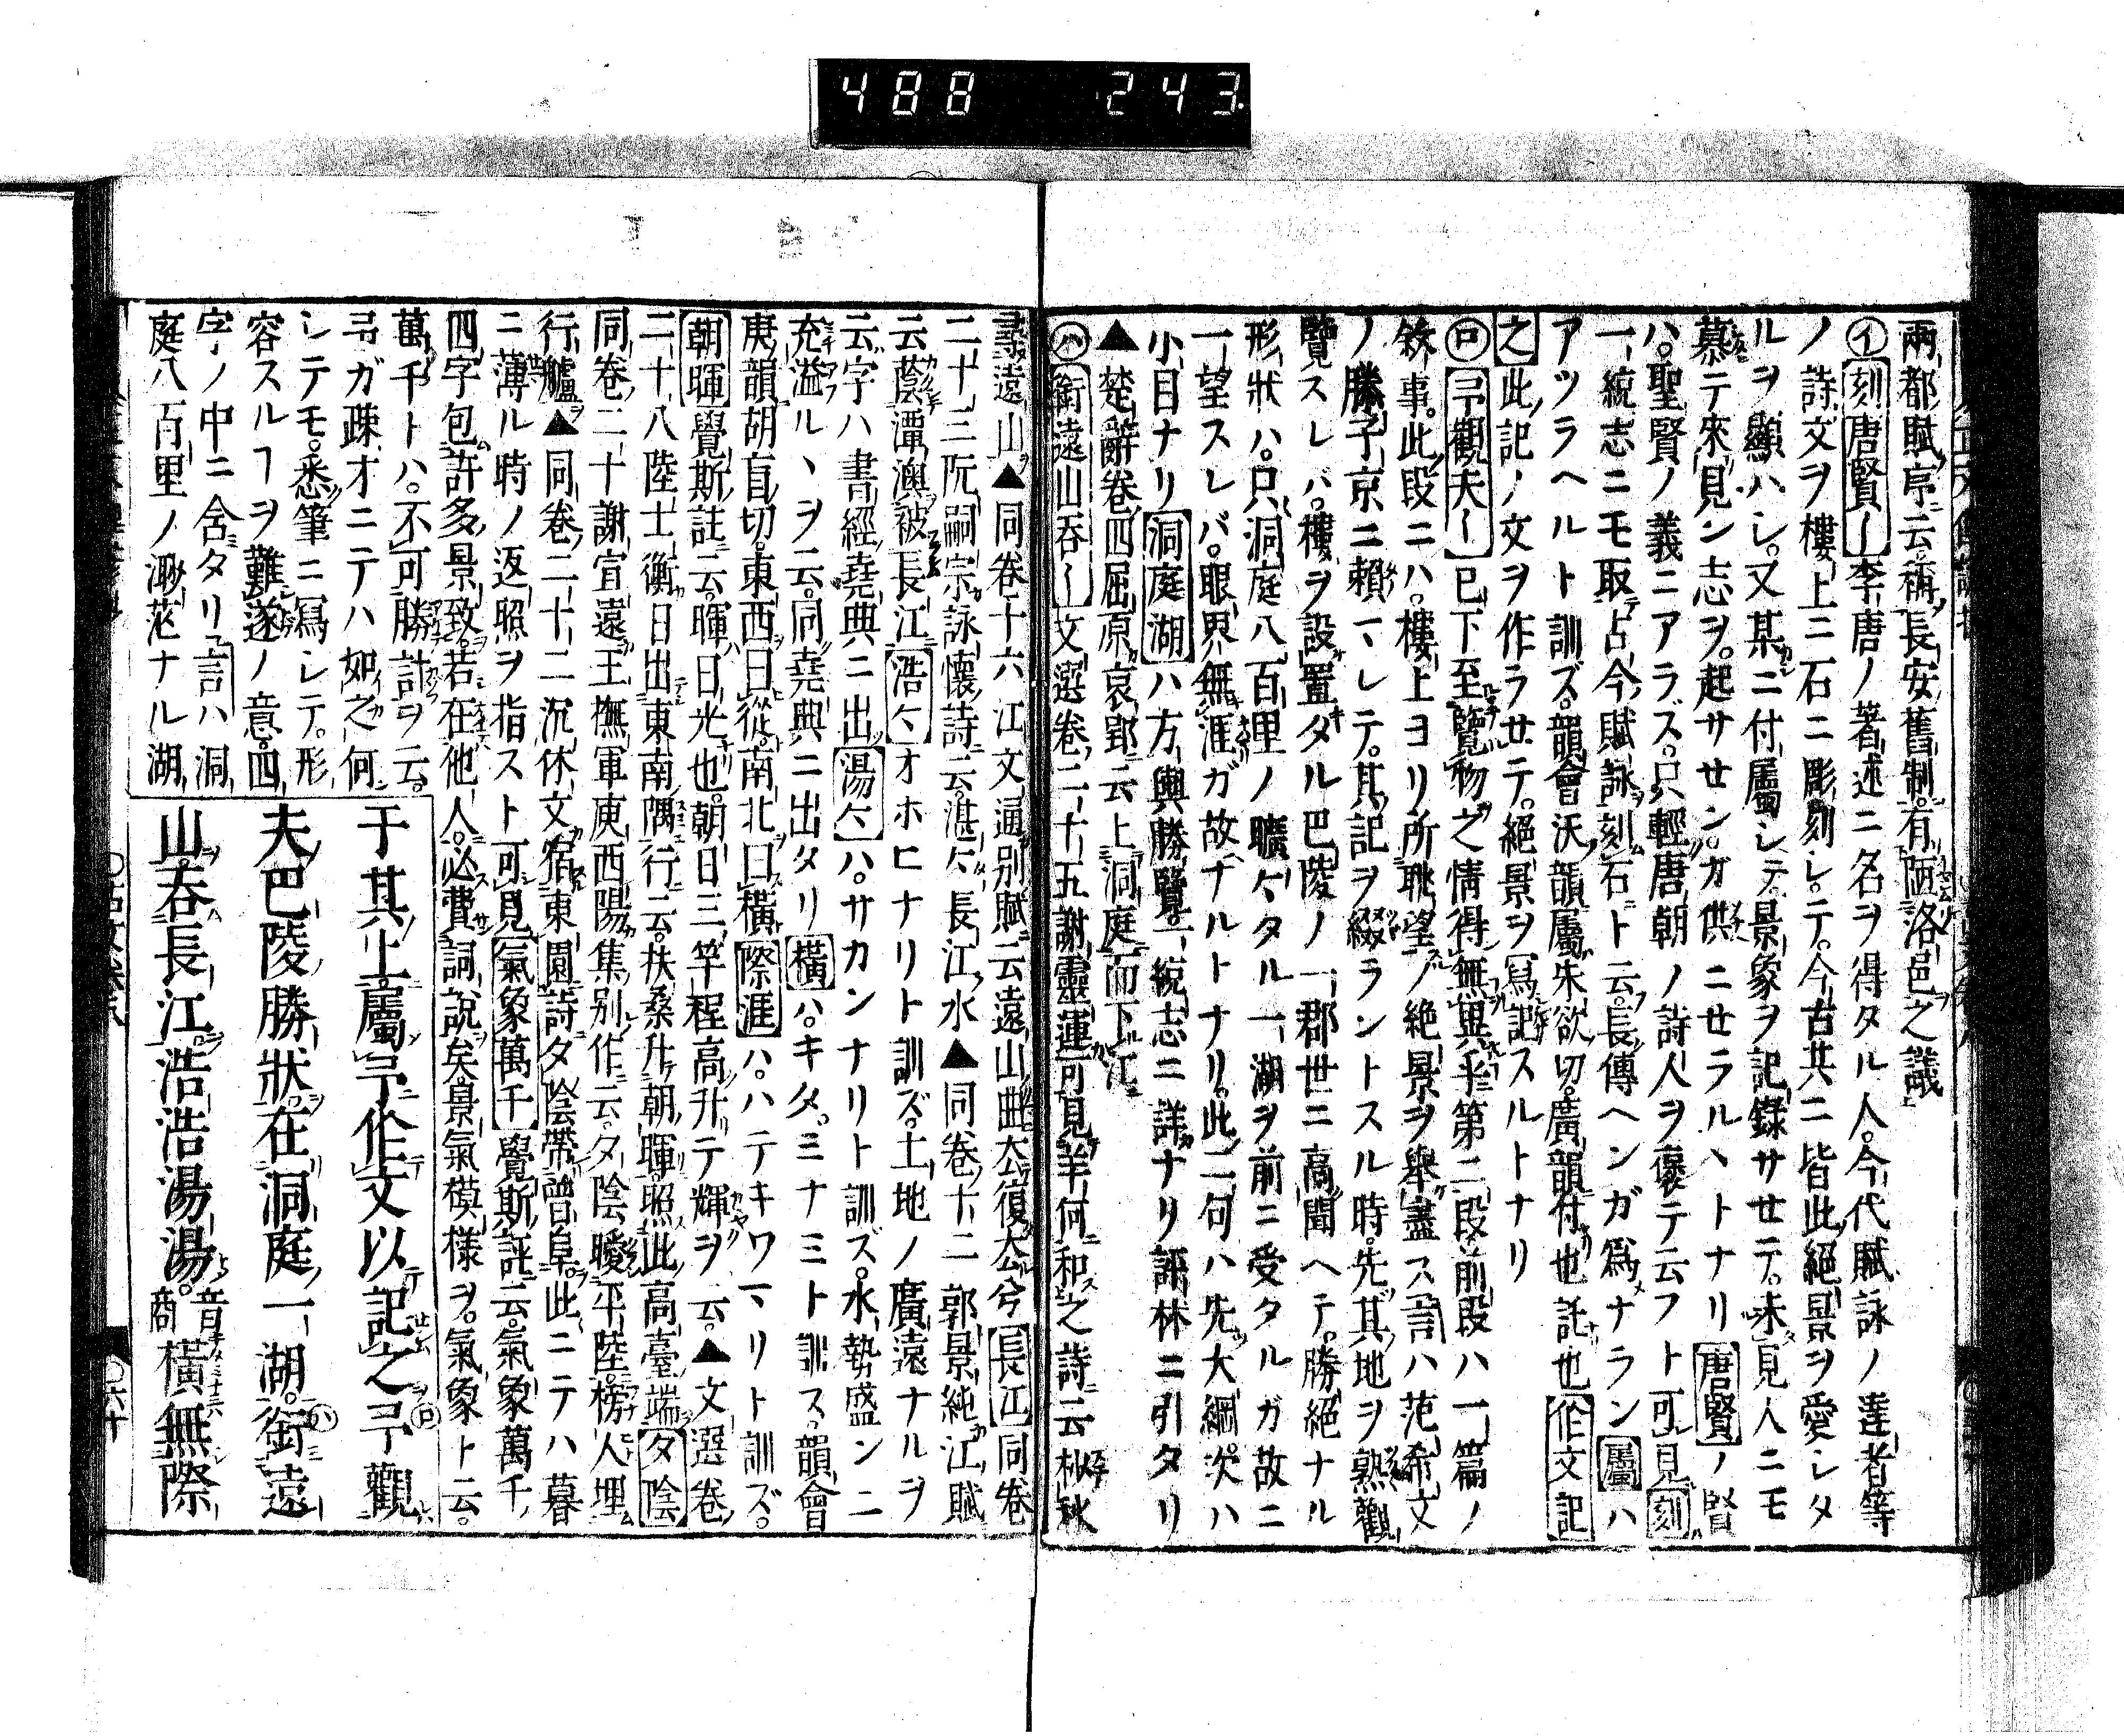 488 243
兩都賦序云稱長安舊制有陋洛邑之議
㋑刻唐賢〱李唐ノ著述ニ名ヲ得タル人今代賦詠ノ達者等
ノ詩文ヲ樓上ニ石ニ彫刻シテ今古共ニ皆此絕景ヲ愛シタ
ルヲ顯ハシ又某ニ付屬シテ景象ヲ記錄サセテ未見人ニモ
慕テ來見ン志ヲ起サセンガ供ニセラル丶トナリ唐賢ノ賢
ハ聖賢ノ義ニアラズ只輕唐朝ノ詩人ヲ褒テ云フト可見刻
一統志ニモ取占今賦詠刻石ト云長傳ヘンガ爲ナラン屬ハ
アツラヘルト訓ズ韻會沃韻屬朱欲切廣韻付也託也作文記
之此記ノ文ヲ作ラサテ絕景ヲ寫記スルトナリ
㋺予觀夫〱已下至覽物之情得無異乎第二段前段ハ一篇ノ
敘事此段ニハ樓上ヨリ所眺望ノ絕景ヲ舉盡ス言ハ范希文
ノ勝子京ニ賴マレテ其記ヲ綴ラントスル時先其地ヲ熟觀
覽スレバ樓ヲ設置タル巴陵ノ一郡世ニ高聞ヘテ勝絕ナル
形狀ハ只洞庭八百里ノ曠々タル一湖ヲ前ニ受タルガ故ニ
一望スレバ眼界無涯ガ故ナルトナリ此二句ハ先大綱次ハ
小目ナリ洞庭湖ハ方輿勝覽一統志ニ詳ナリ評林ニ引タリ
▲楚辭卷四屈原哀郢云上洞庭而下江
㋩銜遠山吞〱文選卷二十五謝靈運可見羊何和之詩云杪秋
尋遠山▲同卷十六江文通別賦云遠山曲去復去兮長江同卷
二十三阮嗣宗詠懷詩云湛々長江水▲同卷十二郭景純江賦
云蔭潭澳被長江浩々オホヒナリト訓ズ土地ノ廣遠ナルヲ
云字ハ書經堯典ニ出湯々ハサカンナリト訓ズ水勢盛ンニ
充溢ル丶ヲ云同堯典ニ出タリ橫ハキタミナミト訓ス韻會
庚韻胡盲切東西曰從南北曰橫際涯ハハテキワマリト訓ズ
朝暉覺斯註云暉日光也朝日三竿程高升テ輝ヲ云▲文選卷
二十八陸士衡日出東南隅行云扶桑升朝暉照此高臺端夕陰
同卷二十謝宣遠王撫軍庾西陽集別作云夕陰曖平陸榜人理
行艫▲同卷二十二沉休文宿東園詩夕陰帶曾阜此ニテハ暮
ニ薄ル時ノ返照ヲ指スト可見氣象萬千覺斯註云氣象萬千
四字包許多景致若在他人必費詞說矣景氣模樣ヲ氣象ト云
萬千トハ不可勝計ヲ云
弓ガ踈才ニテハ如之何
シテモ悉筆ニ寫シテ形
容スルヿヲ難遂ノ意四
字ノ中ニ含タリ言ハ洞
庭八百里ノ渺茫ナル湖
于其上屬予作文以記之㋺予觀
夫巴陵勝狀在洞庭一湖㋩銜遠
山吞長江浩浩湯湯音商橫無際
〇六十